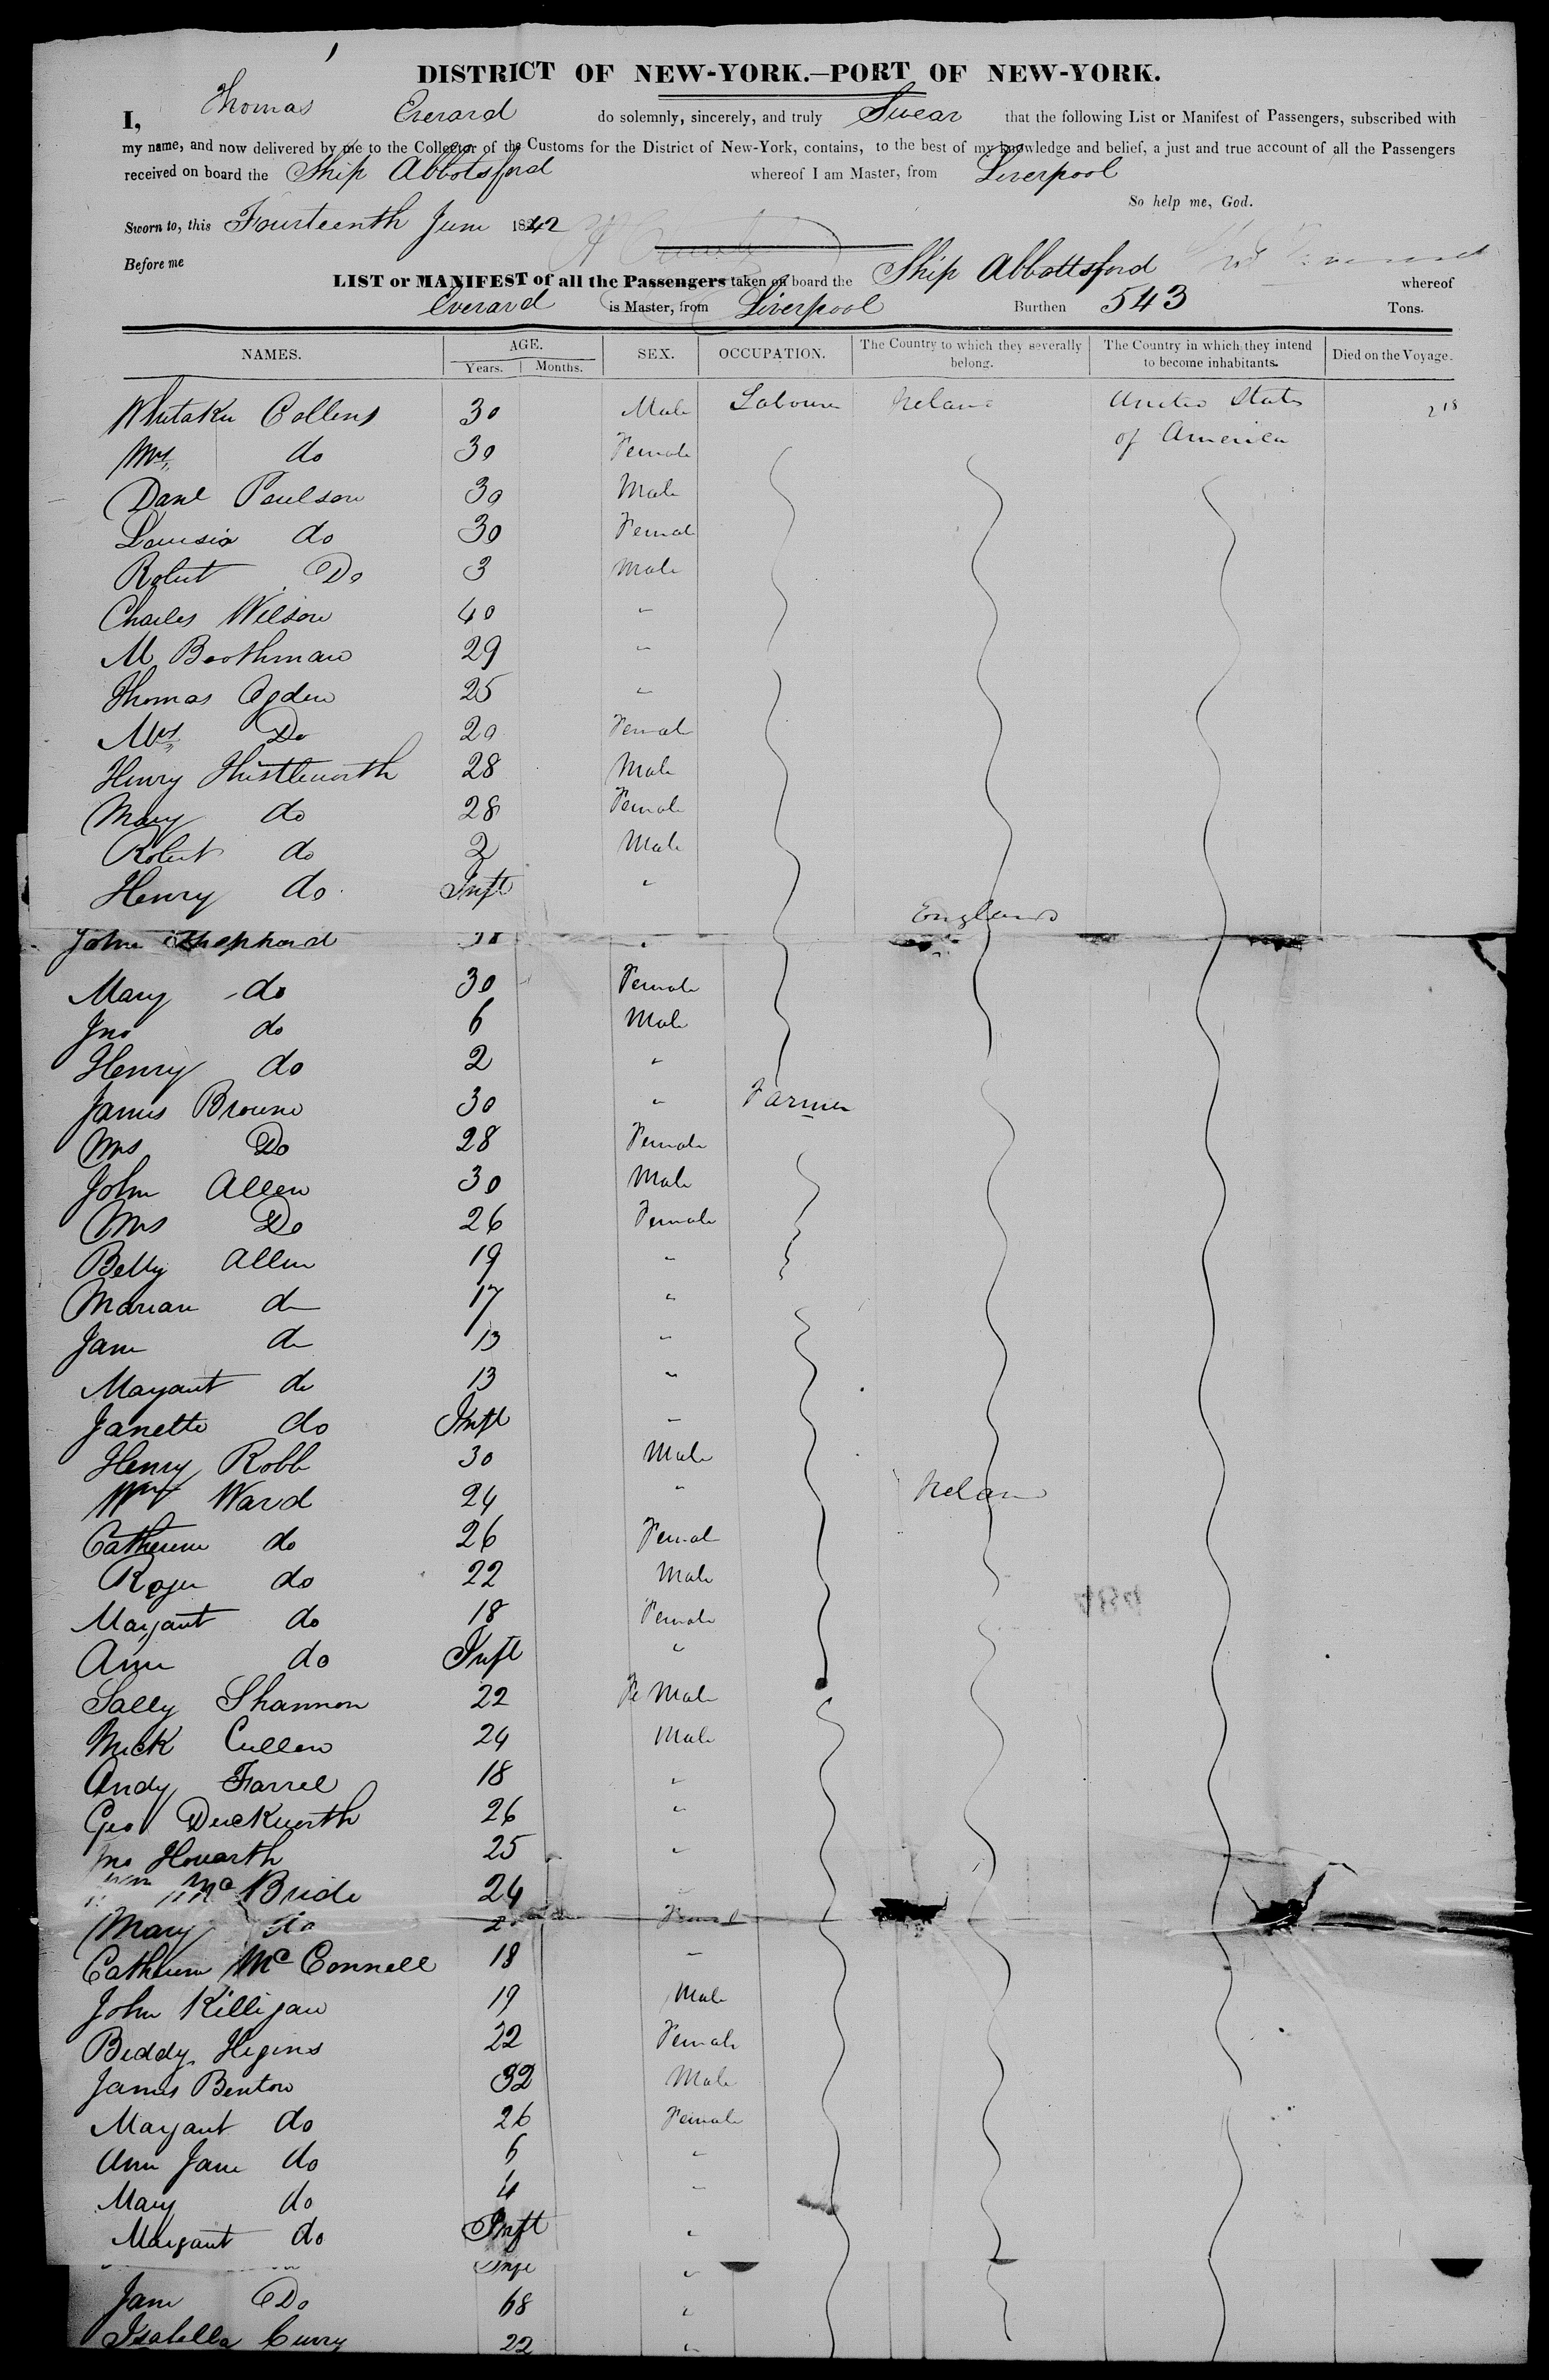 1
DISTRICT OF NEW-YORK.—PORT OF NEW-YORK.
I, Thomas Everard do solemnly, sincerely, and truly Swear that the following List or Manifest of Passengers, subscribed with
my name, and now delivered by me to the Collector of the Customs for the District of New-York, contains, to the best of my knowledge and belief, a just and true account of all the Passengers
received on board the Ship Abbotsford whereof I am Master, from Liverpool
So help me, God.
Sworn to, this Fourteenth June 1842
Before me
LIST or MANIFEST of all the Passengers taken on board the Ship Abbottsford whereof
Everard is Master, from Liverpool Burthen 543 Tons.
NAMES. AGE. Years. Months. SEX. OCCUPATION. The Country to which they severally belong. The Country in which they intend to become inhabitants. Died on the Voyage.
Whitaker Collens 30 Male Labourer Ireland United States 218
Mrs do 30 Female of America
Danl Poulson 30 Male
Louisia do 30 Female
Robert Do 3 Male
Charles Wilson 40 "
M Boothman 29 "
Thomas Ogden 25 "
Mrs Do 20 Female
Henry Thistleworth 28 Male
Mary do 28 Female
Robert do 2 Male
Henry do Inft "
England
John Shephard "
Mary do 30 Female
Jno do 6 Male
Henry do 2 "
James Browne 30 " Farmer
Mrs Do 28 Female
John Allen 30 Male
Mrs Do 26 Female
Betty Allen 19 "
Marian do 17 "
Jane do 13 "
Margaret do 13 "
Janette do Inft "
Henry Robb 30 Male
Wm Ward 24 " Ireland
Catherine do 26 Female
Roger do 22 Male
Margaret do 18 Female
Ann do Inft "
Sally Shannon 22 Fe Male
Mick Cullen 24 Male
Andy Farrel 18 "
Geo Duckworth 26 "
Jno Howarth 25 "
Wm Mc Bride 24
Mary do Female
Catherine Mc Connell 18 "
John Killigan 19 Male
Biddy Higins 22 Female
James Benton 32 Male
Margaret do 26 Female
Ann Jane do 6 "
Mary do 4 "
Margaret do Inft "
Inft "
Jane Do 68 "
Isabella Curry 22 "